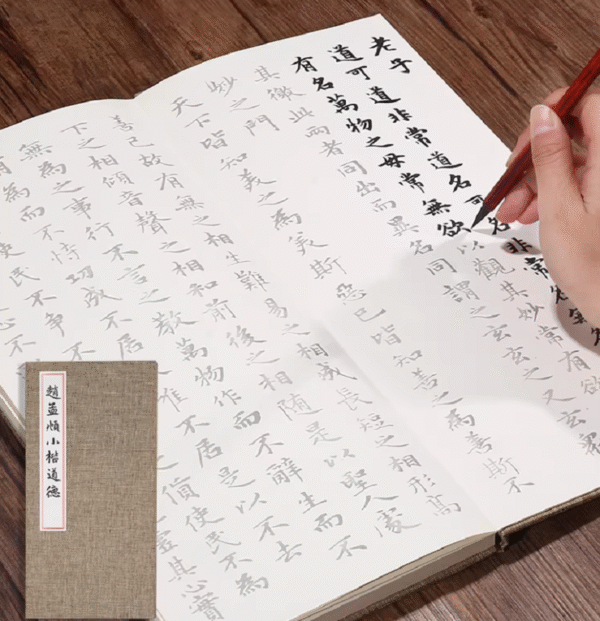 老子
道可道非常道名可名非常名無名
有名萬物之母常無欲以觀其妙常有欲
其徼此兩者同出而異名同謂之玄玄之又玄眾
妙之門
天下皆知美之為美斯惡已皆知善之為善斯不
善已故有無之相生難易之相成長短之相形高
下之相傾音聲之相和前後之相隨是以聖人處
無為之事行不言之教萬物作而不辭生而不
有為而不恃功成不居惟不居是以不去
使民不爭不貨使民不為
心不其心實
趙孟頫小楷道德